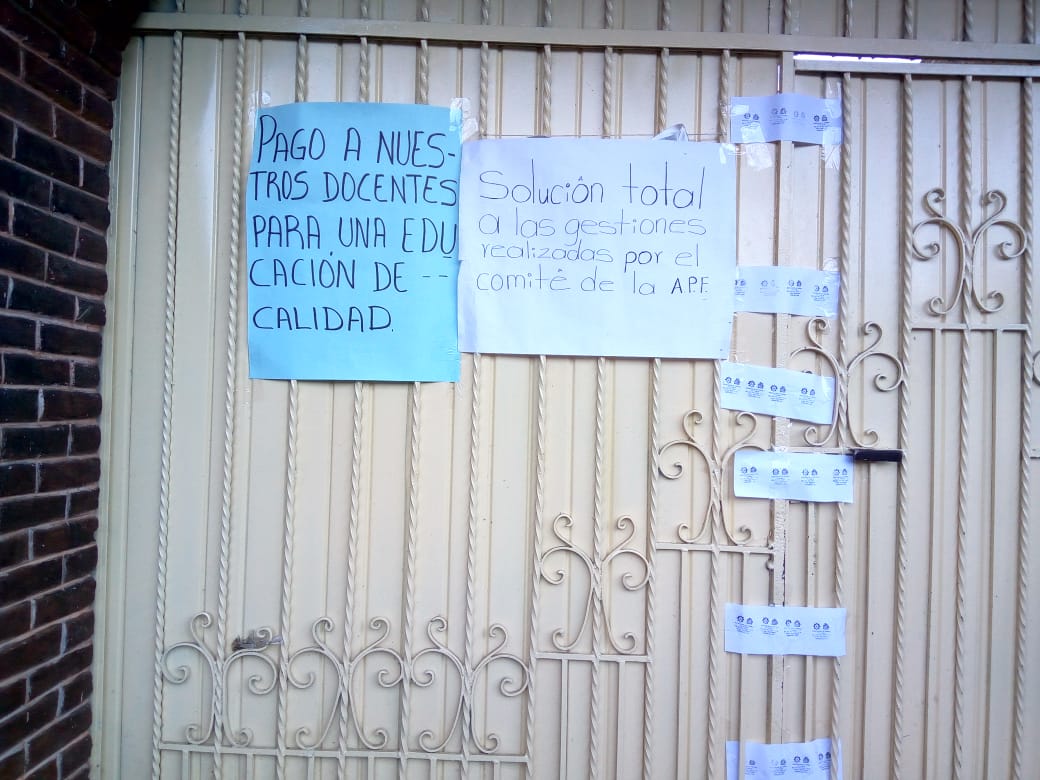 PAGO A NUES-
TROS DOCENTES
PARA UNA EDU
CACIÓN DE --
CALIDAD.
Solución total
a las gestiones
realizadas por el
comité de la A.P.F.